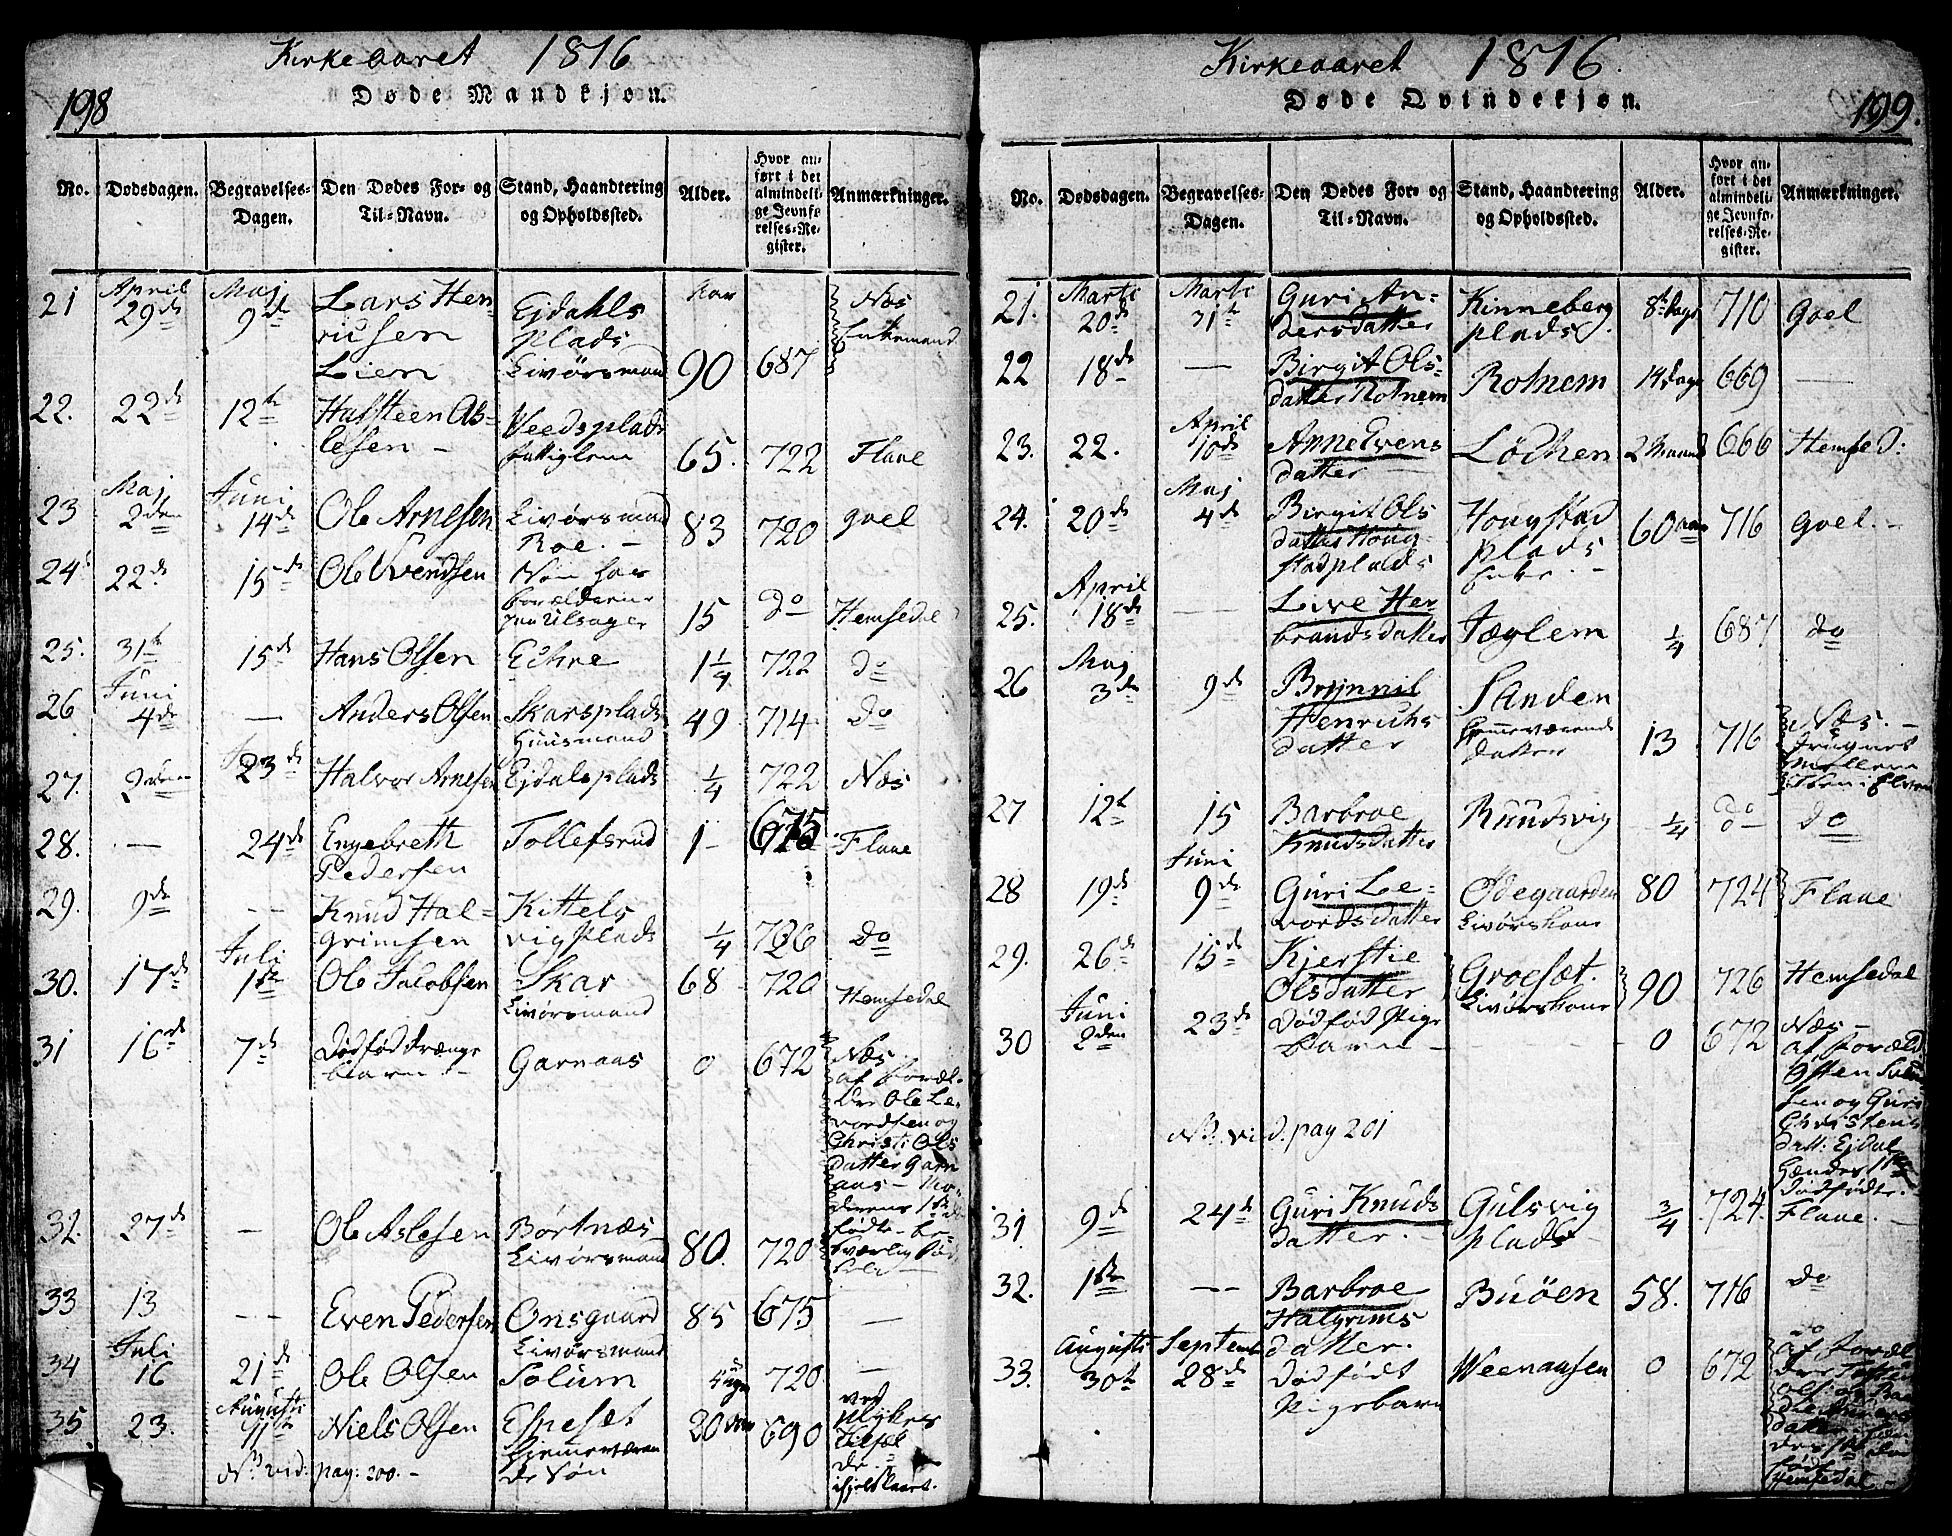 Kirkeaaret 1816
198
Døde Mandkjøn.
No. Dødsdagen. Begravelses-Dagen. Den Dødes For- og Til-Navn. Stand, Haandtering og Opholdssted. Alder. Hvor anført i det almindelige Jevnførelses-Register. Anmærkninger.
21 April 29de Maj 9de Lars Henricsen Lien Ejdahls plads Livørsmand Aar 90 687 Næs Enkemand
22. 22de 12te Halsteen Aslesen - Veedsplads 65. 722 Flaae
23 Maj 2den Juni 14de Ole Arnesen Livørsmand Roe. - 83 720 Goel
24 22de 15de Ole Svendsen Søn hos Forældrene paa Ulsager 15 do Hemsedal
25. 31te 15de Hans Olsen Echre 1 1/4 722 do
26 Juni 4de — Anders Olsen Skarsplads Huusmand 49 714 do
27. 23de Halvor Arnesen Ejdalsplads 1/4 722 Næs
28. — 24de Engebreth Pedersen Tollefsrud 1 - 675 Flaae
29. 9de - - Knud Halgrimsen Kittelsvigplads 1/4 726 do
30. 17de Juli 1ste Ole Jacobsen Skar Livørsmand 68 720 Hemsedal
31 16de 7de Dødfød Drængebarn - Garnaas 0 672 Næs af Forældre Ole Levordsen og Christi Olsdatter Garnaas -
32. 27de — Ole Aslesen Børtnæs Livørsmand 80. 720
33 13 - - Even Pedersen Onsgaard Livørsmand 85 675 —
34 Juli 16 21de Ole Olsen Solum 720 —
35. 23. Augusti 11te Niels Olsen Espesæt hjemmeværende Søn 20 690 ved ihjelslaaet.
NB vid: pag: 200. -
Kirkeaaret 1816.
199.
Døde Qvindekjøn.
No. Dødsdagen. Begravelses-Dagen. Den Dødes For- og Til-Navn. Stand, Haandtering og Opholdssted. Alder. Hvor anført i det almindelige Jevnførelses-Register. Anmærkninger.
21. Marti 20de Marti 31te Guri Andersdatter Kinneberg plads. 8te Dage 710 Goel
22 18de — Birgit Olsdatter Rotnem Rotnem 14 Dage 669 —
23. 22. April 10de Anne Evensdatter Løchen 2 Maaned 666 Hemsed:
24. 20de Maj 4de Birgit Olsdatter Hougstadplads Hougstad plads Enke. - 60 Aar 716 Goel. -
25. April 18de — Live Herbrandsdatter Tæglem 1/4 687 do
26 Maj 3de 9de Brynnil Henrichsdatter Sanden hjemmeværende Datter 13 716 Næs. - Elven
27 12te 15 Barbroe Knudsdatter Ruudsvig 1/4 do do
28 19de Juni 9de Guri Levordsdatter Ødegaarden Livørskone 80 724 Flaae
29. 26de 15de Kjerstie Olsdatter Groesæt. Livørskone 90 726 Hemsedal
30 Juni 2den 23de Dødfød Pigebarn - 0 672 Næs - af Foræld: Østen og Guri Christensdatt: Ejdal hendes 1ste Dødfødte. -
NB. vid. pag 201
31. 9de 24de Guri Knudsdatter. - Gulsvig plads 3/4 724 Flaae. -
32. 1ste - - Barbroe Halgrimsdatter. Buöen 58. 716 do
33. Augusti 30te Septemb 28de Dødfødt Pigebarn Weenaasen 0 672 do af Forældre Hemsedal -